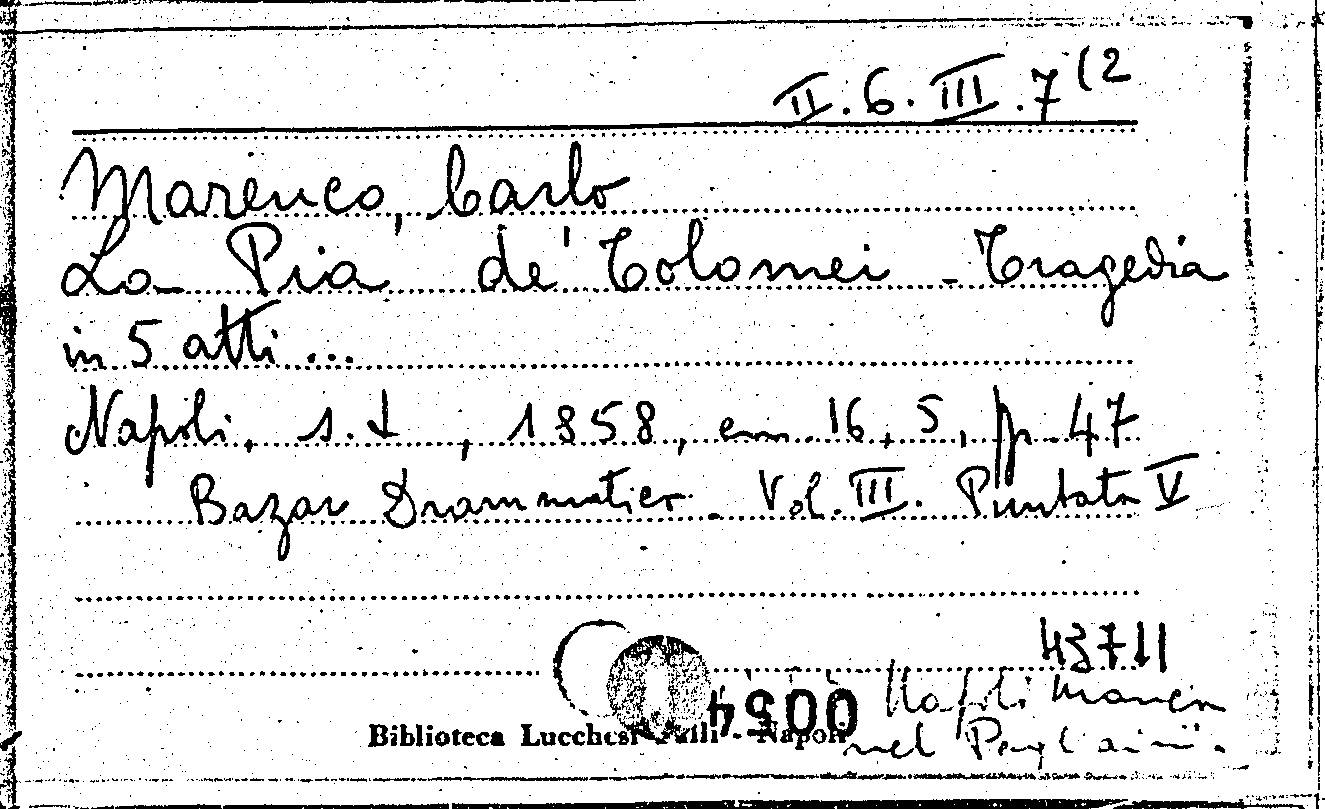 II.6.III.7(2
Marenco, Carlo
La Pia de' Tolomei - Tragedia
in 5 atti ...
Napoli, s.t, 1858, em. 16,5, p. 47
Bazar Drammatico. Vol. III. Puntata V
43711
0054
Napoli manca
Biblioteca Lucchesi Palli - Napoli
nel Pagliaini.